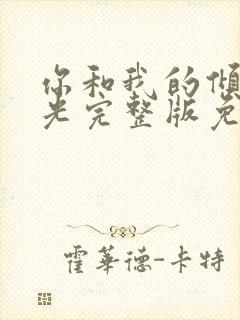 你和我的倾
光完整版免
霍华德-卡特